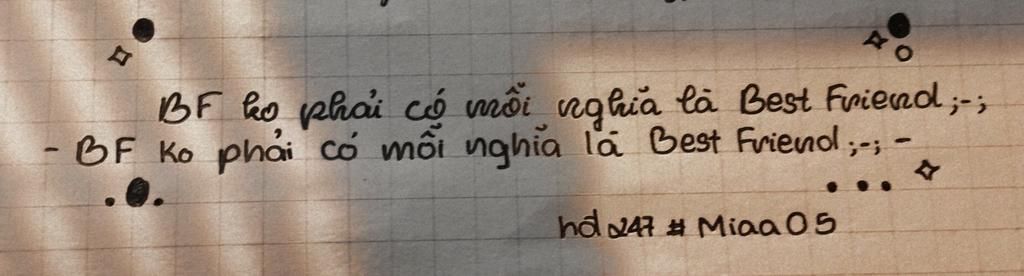 BF ko phải có mỗi nghĩa là Best Friend ;-;
- BF Ko phải có mỗi nghĩa là Best Friend ;-; -
hd 247 # Miaa05